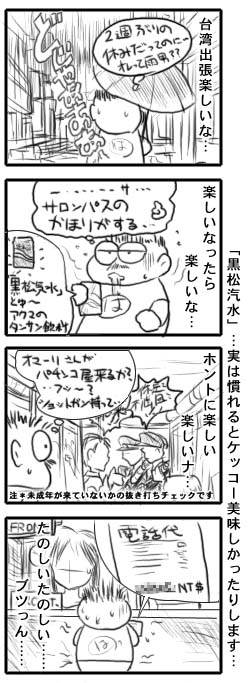 「黒松汽水」…実は慣れるとケッコー美味しかったりします…
台湾出張楽しいな…
2週ぶりの
休みだってのに…
オレって雨男??
どじゃばばばあ
楽しいなったら
楽しいな…
…サ…
サロンパスの
かほりがする…
「黒松汽水」
とゆ〜
アクマの
タンサン飲料
は
ホントに楽しい
楽しいナ…
オマーリさんが
パチンコ屋来るか?
…フツ〜?
ショットガン持って…
注*未成年が来ていないかの抜き打ちチェックです
FRO
電話代
NT$
たのしいたのしい……
プツっん……
は